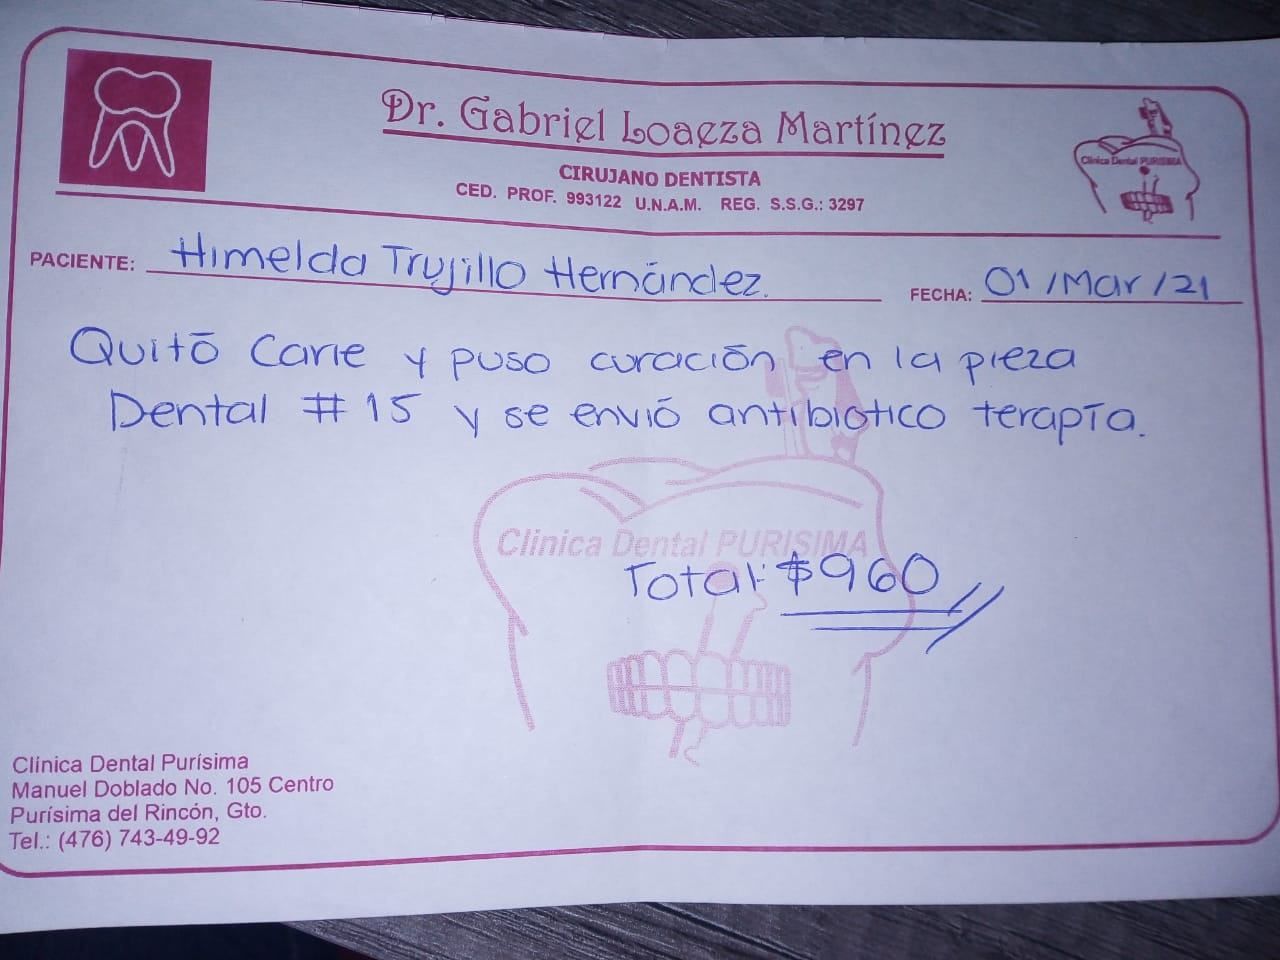 Dr. Gabriel Loaeza Martínez
CIRUJANO DENTISTA
CED. PROF. 993122 U.N.A.M. REG. S.S.G.: 3297
Clinica Dental PURISIMA
PACIENTE: Himelda Trujillo Hernández.
FECHA: 01/Mar/21
Quitó Carie y puso curación en la pieza
Dental #15 y se envió antibiotico terapía.
Clinica Dental PURISIMA
Total: $960
Clínica Dental Purísima
Manuel Doblado No. 105 Centro
Purísima del Rincón, Gto.
Tel.: (476) 743-49-92